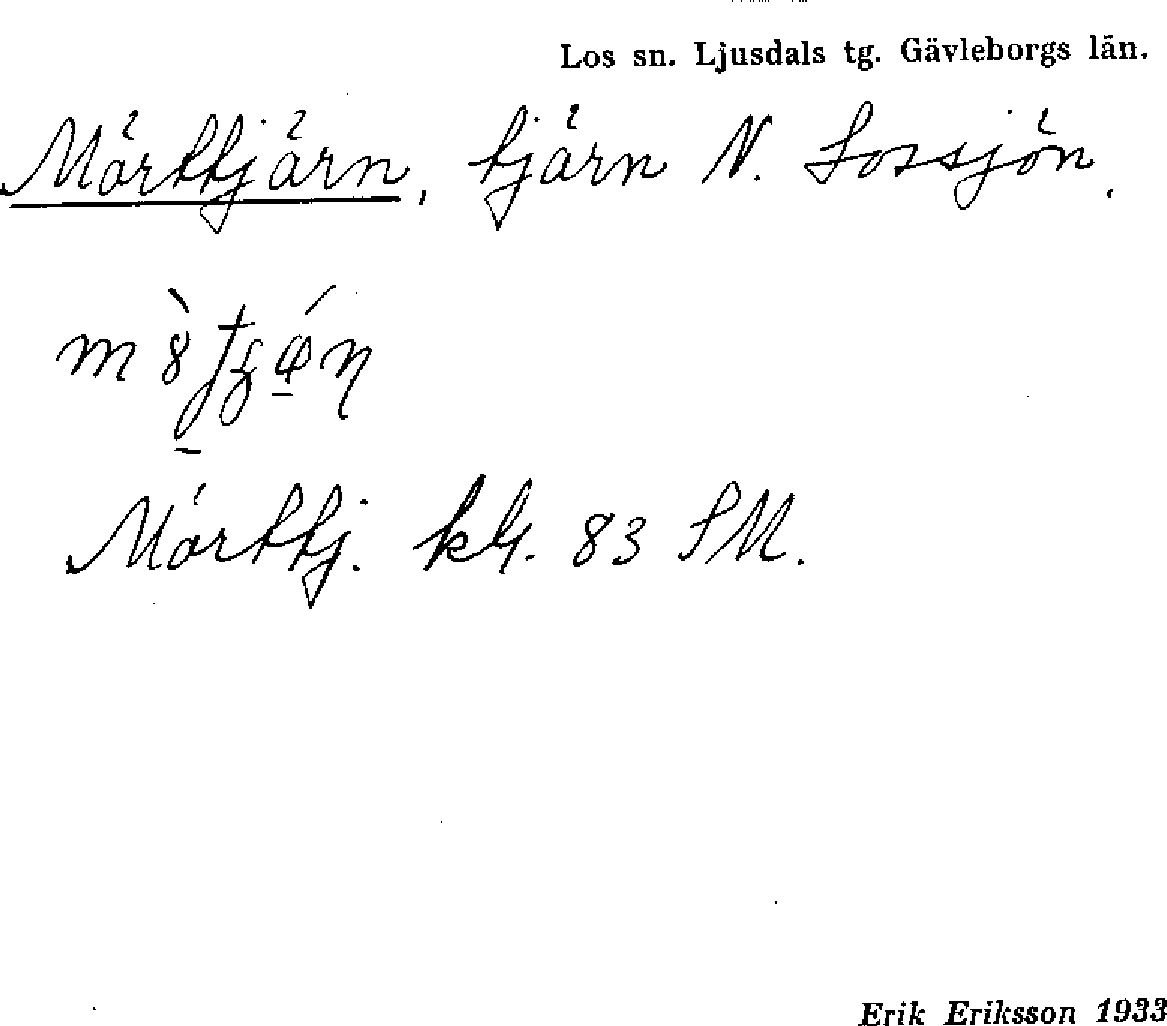 Los sn. Ljusdals tg. Gävleborgs län.
Mörttjärn, tjärn N. Lossjön.
Mörttj. kl4. 83 SM.
Erik Eriksson 1933